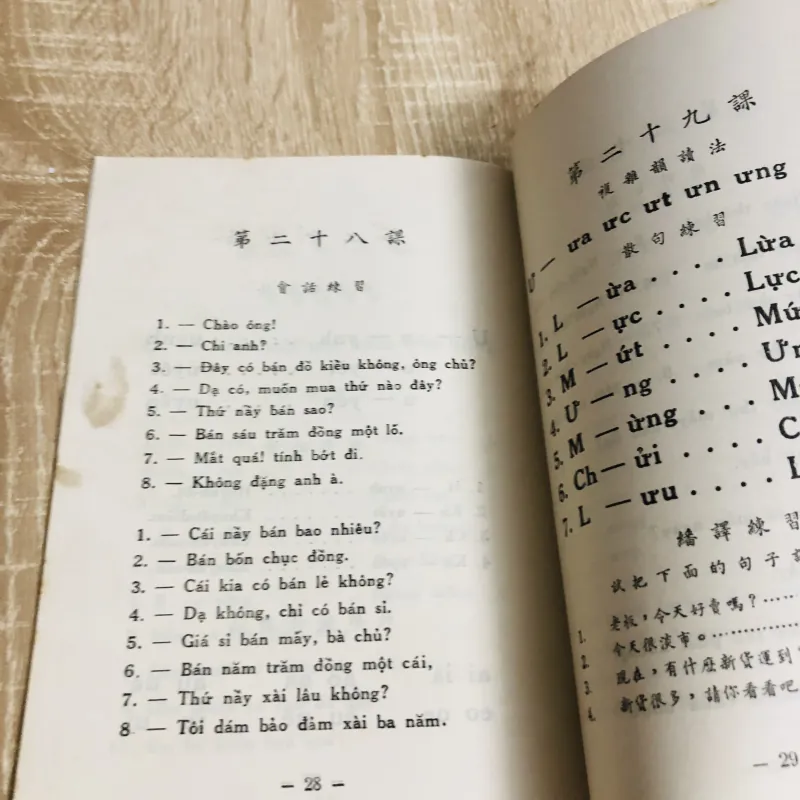 第二十八課
會話練習
1. — Chào ông!
2. — Chi anh?
3. — Đây có bán đồ kiều không, ông chủ?
4. — Dạ có, muốn mua thứ nào đây?
5. — Thứ nầy bán sao?
6. — Bán sáu trăm đồng một lố.
7. — Mắt quá! tính bớt đi.
8. — Không đặng anh à.
1. — Cái nầy bán bao nhiêu?
2. — Bán bốn chục đồng.
3. — Cái kia có bán lẻ không?
4. — Dạ không, chỉ có bán sỉ.
5. — Giá sỉ bán mấy, bà chủ?
6. — Bán năm trăm đồng một cái,
7. — Thứ nầy xài lâu không?
8 — Tôi dám bảo đảm xài ba năm.
— 28 —
第二十九課
複雜韻讀法
Ư — ưa ưc ưt ưn ưng
散句練習
1. L — ừa . . . . Lừa
2. L — ực . . . . Lực
3. M — ứt . . . .
4. Ư — ng . . . .
5. M — ừng . . . .
6. Ch — ửi . . . .
7. L — ưu . . . .
繙譯練習
試把下面的句子
1. 老板，今天好賣嗎？
2. 今天很淡市。
3. 現在，有什麽新貨運到
4. 新貨很多，請你看看吧
— 29